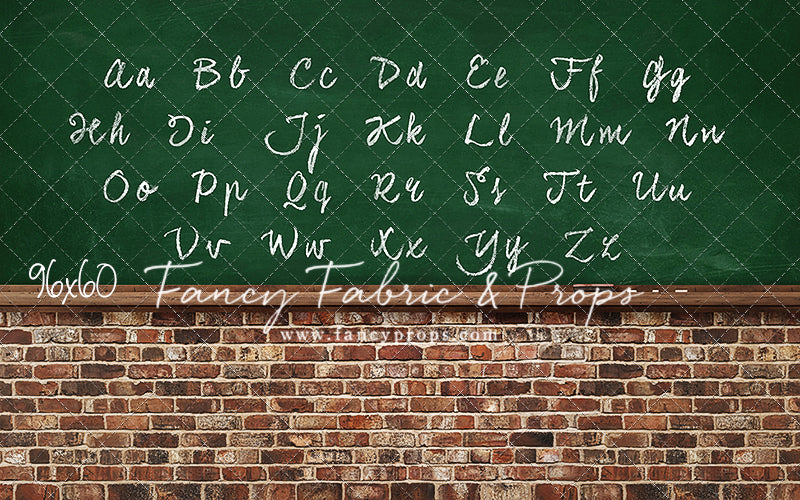 Aa Bb Cc Dd Ee Ff Gg
Hh Ii Jj Kk Ll Mm Nn
Oo Pp Qq Rr Ss Tt Uu
Vv Ww Xx Yy Zz
96x60 Fancy Fabric & Props
www.fancyprops.com